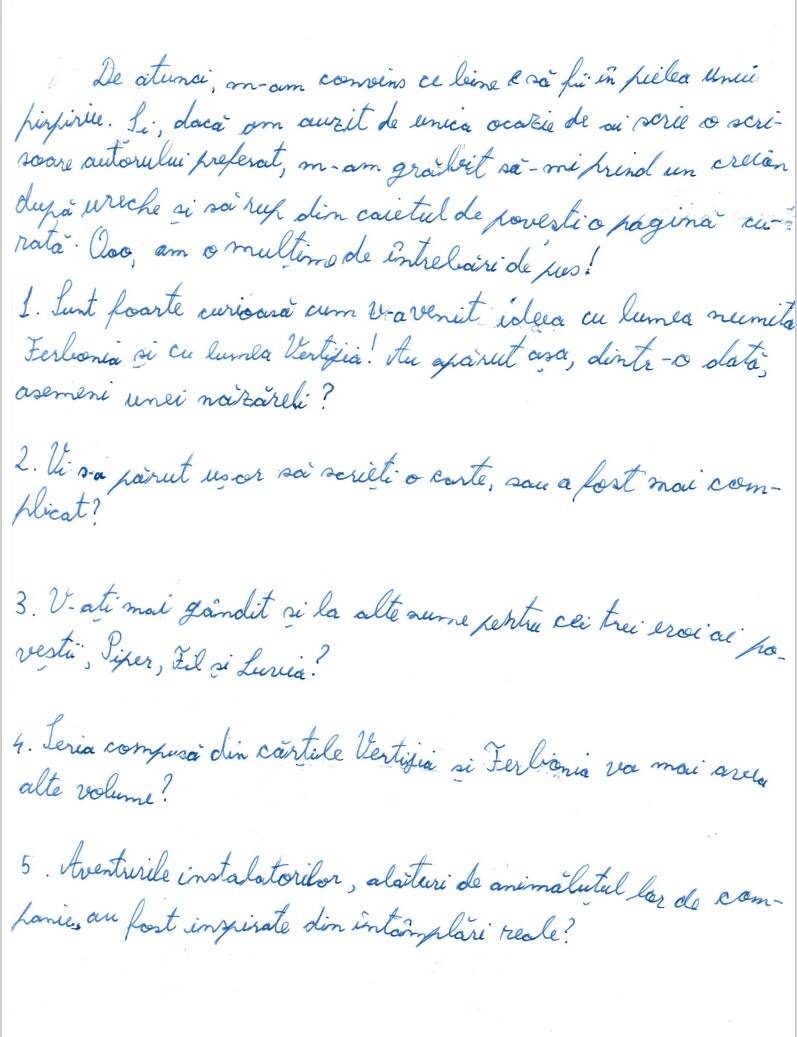 De atunci, m-am convins ce bine e să fii în pielea unui
pirpiriu. Și, dacă am auzit de unica ocazie de ai scrie o scri-
soare autorului preferat, m-am grăbit să-mi prind un creion
după ureche și să rup din caietul de povești o pagină cu-
rată. Ooo, am o mulțime de întrebări de pus!
1. Sunt foarte curioasă cum v-a venit ideea cu lumea numită
Ferbonia și cu lumea Vertijia! Au apărut așa, dintr-o dată,
asemeni unei năzăreli?
2. Vi s-a părut ușor să scrieți o carte, sau a fost mai com-
plicat?
3. V-ați mai gândit și la alte nume pentru cei trei eroi ai po-
veștii, Piper, Fil și Luvia?
4. Seria compusă din cărțile Vertijia și Ferbonia va mai avea
alte volume?
5. Aventurile instalatorilor, alături de animăluțul lor de com-
panie, au fost inspirate din întâmplări reale?